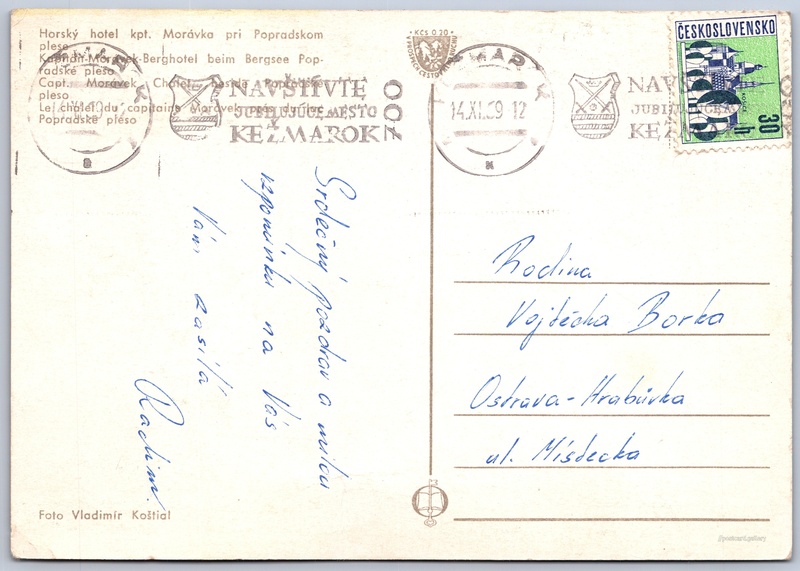 Horský hotel kpt. Morávka pri Popradskom
plese
Kapitän-Morávek-Berghotel beim Bergsee Pop-
radské pleso
Capt. Morávek Chalet beside Popradské
pleso
Le chalet du capitaine Morávek près du lac
Popradské pleso
KČS 0.20
KEŽMAROK
NAVŠTÍVTE
JUBILUJÚCE MESTO
KEŽMAROK
700
14.XI.69 12
NAVŠ
JUBILUJÚCE
KEŽ
ČESKOSLOVENSKO
30 h
Srdečný pozdrav a milou
vzpomínku na Vás
Vám zasílá
Radim
Rodina
Vojtěcha Borka
Ostrava-Hrabůvka
ul. Místecka
Foto Vladimír Koštial
//postcard.gallery